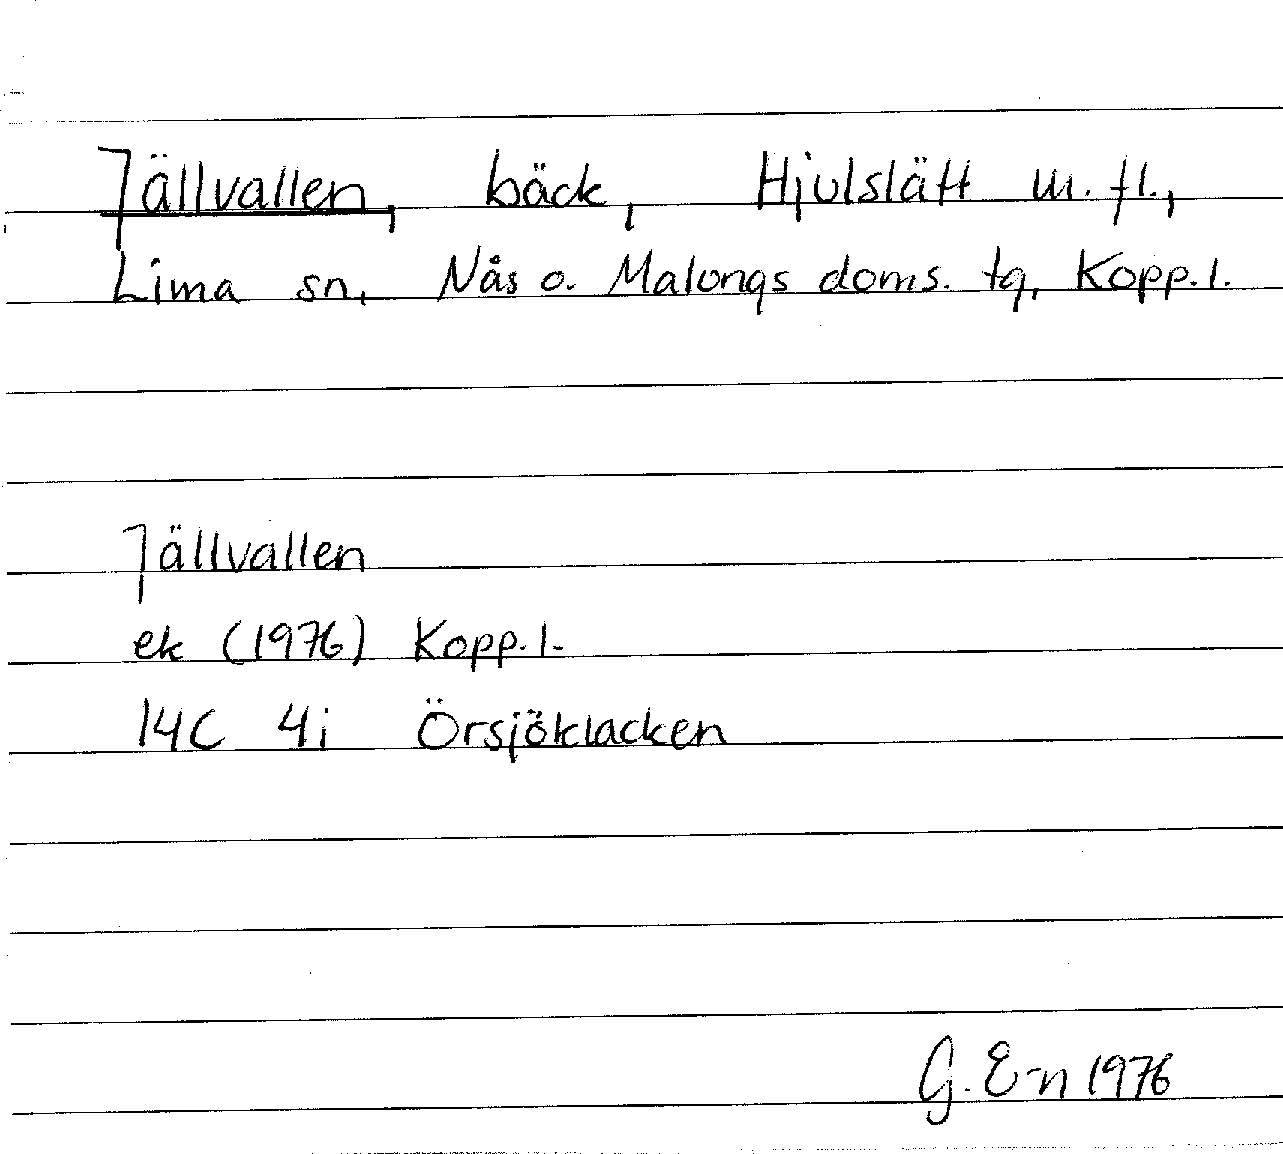 Jällvallen, bäck, Hjulslätt m. fl.,
Lima sn, Nås o. Malungs doms. tg, Kopp. l.
Jällvallen
ek (1976) Kopp. l.
14C 4i Örsjöklacken
G. E-n 1976